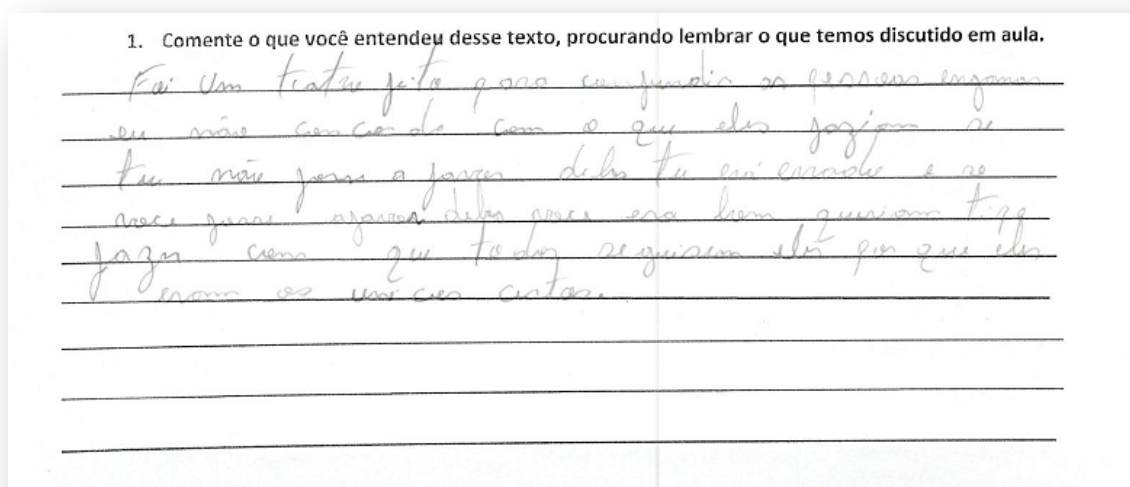 1. Comente o que você entendeu desse texto, procurando lembrar o que temos discutido em aula.
Foi um feito para confundir as pessoas enganar
eu não concordo com o que eles faziam se
tu não fosse a favor deles tu era errado e se
voce fosse afavor deles voce era bem queriam tipo
fazer com que todos seguisem eles por que eles
eram os unicos certos.